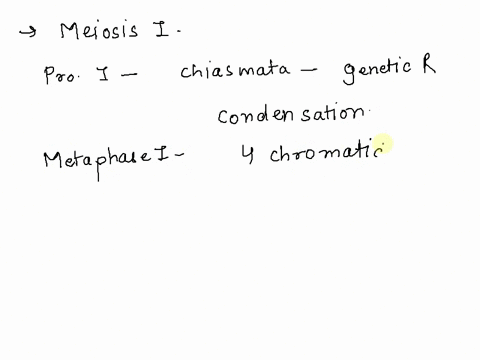 → Meiosis I.
Pro. I - chiasmata - genetic R
condensation.
Metaphase I - 4 chromatic